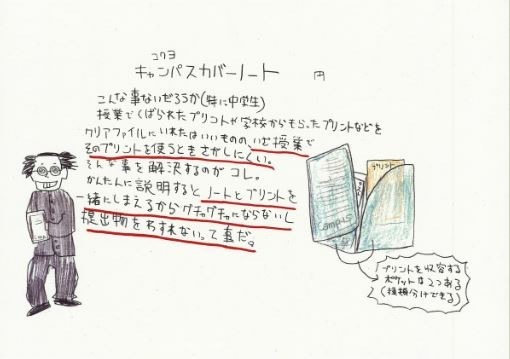 コクヨ
キャンパスカバーノート 円
こんな事ないだろうか(特に中学生)
授業でくばられたプリントや学校からもらったプリントなどを
クリアファイルにいれたはいいものの、いざ授業で
そのプリントを使うときさがしにくい。
そんな事を解決するのがコレ。
かんたんに説明するとノートとプリントを
一緒にしまえるからグチャグチャにならないし
提出物をわすれないって事だ。
プリント
Campus
プリントを収容する
ポケットは2つある